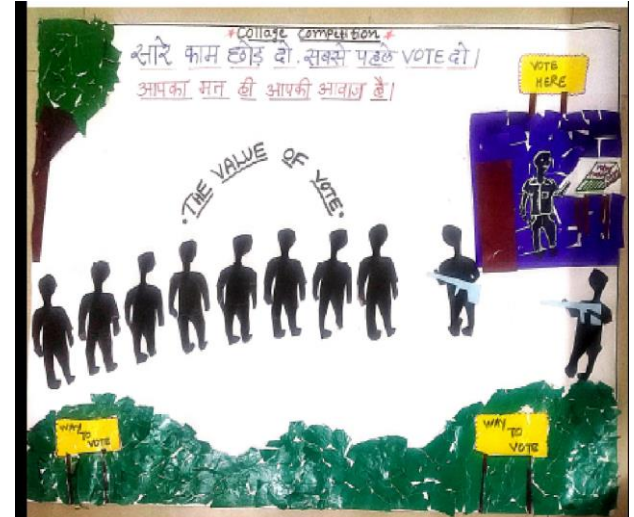 *Collage Competition*
सारे काम छोड़ दो. सबसे पहले VOTE दो।
आपका मत ही आपकी आवाज़ है।
VOTE
HERE
• THE VALUE OF VOTE •
WAY
TO
VOTE
WAY
TO
VOTE